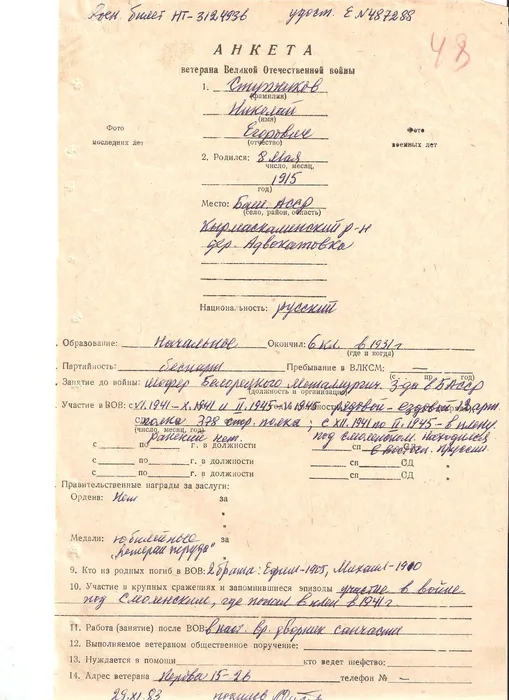 Воен. билет НТ-3124936 удост. Е N487288
48
АНКЕТА
ветерана Великой Отечественной войны
1. Ступников
(фамилия)
Николай
(имя)
Фото последних лет
Егорович
(отчество)
Фото военных лет
2. Родился: 8 мая
число, месяц,
1915
год)
Место: Баш. АССР
(село, район, область)
Кармаскалинский р-н
дер. Адвокатовка
Национальность: русский
Образование: Начальное Окончил: 6 кл. в 1931 г
(где и когда)
Партийность: беспарт Пребывание в ВЛКСМ:
(с пр год)
Занятие до войны: шофер Белорецкого Металлургич. з-да в БАССР
(должность и организация)
Участие в ВОВ: с VI.1941-X.1941 и II.1945 рядовой-ездовой арт.
полка 778 стр. полка; с XII.1941 по II.1945-в плену
(число, месяц, год)
Ранений нет. под Смоленском. находился
с по г. в должности сп в Восточн. Пруссии
с по г. в должности сп СД
с по г. в должности сп СД
Правительственные награды за заслуги:
Ордена: Нет за
Медали: юбилейные за
"Ветеран труда"
9. Кто из родных погиб в ВОВ: 2 брата: Ефим-1905, Михаил-1910
10. Участие в крупных сражениях и запомнившиеся эпизоды участие в войне
под Смоленским, где попал в плен в 1941 г
11. Работа (занятие) после ВОВ: в наст. вр. дворник санчасти
12. Выполняемое ветераном общественное поручение:
13. Нуждается в помощи кто ведет шефство:
14. Адрес ветерана 15-26 телефон № —
29.XI.83 подпись